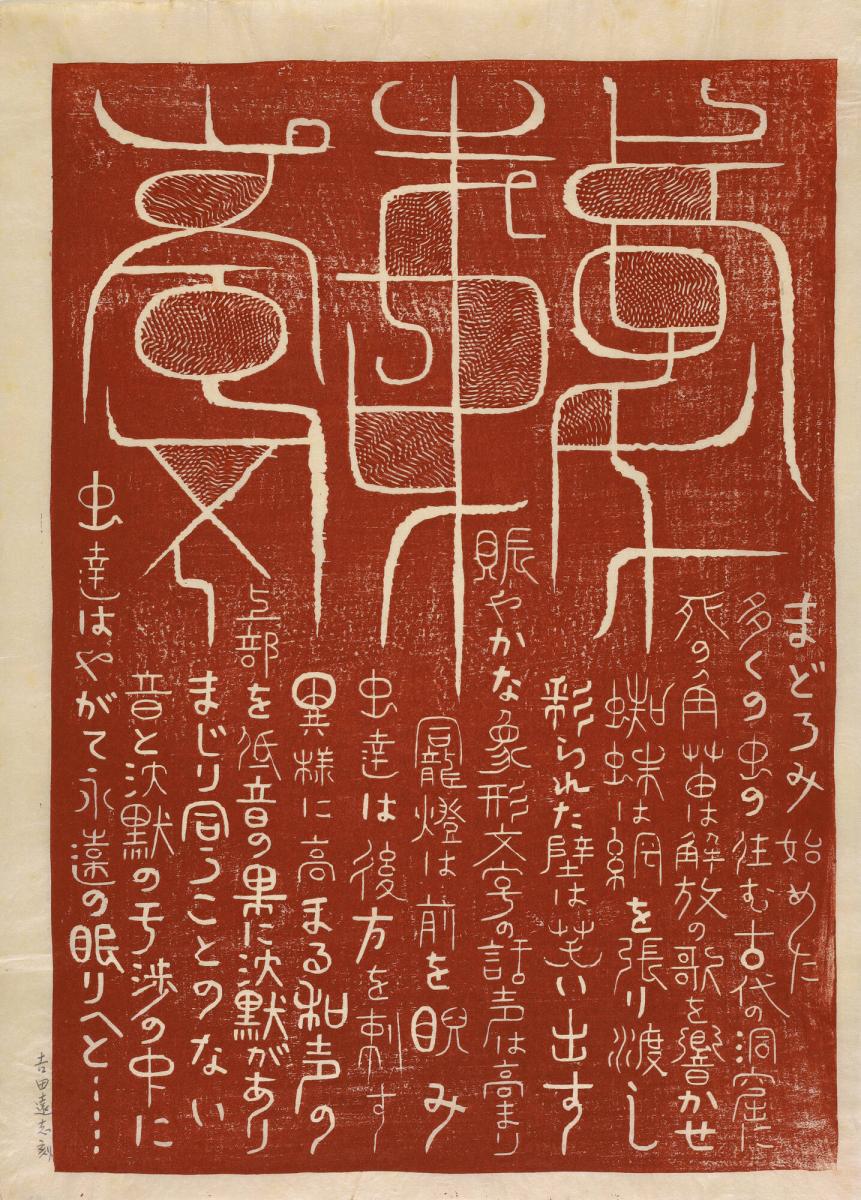 まどろみ始めた
多くの虫の住む古代の洞窟に
死の角笛は解放の歌を響かせ
蜘蛛は網を張り渡し
彩られた壁は笑い出す
賑やかな象形文字の話声は高まり
燈は前を睨み
虫達は後方を刺す
異様に高まる和声の
上部を低音の果に沈黙があり
まじり合うことのない
音と沈黙の干渉の中に
虫達はやがて永遠の眠りへと……
吉田遠志刻